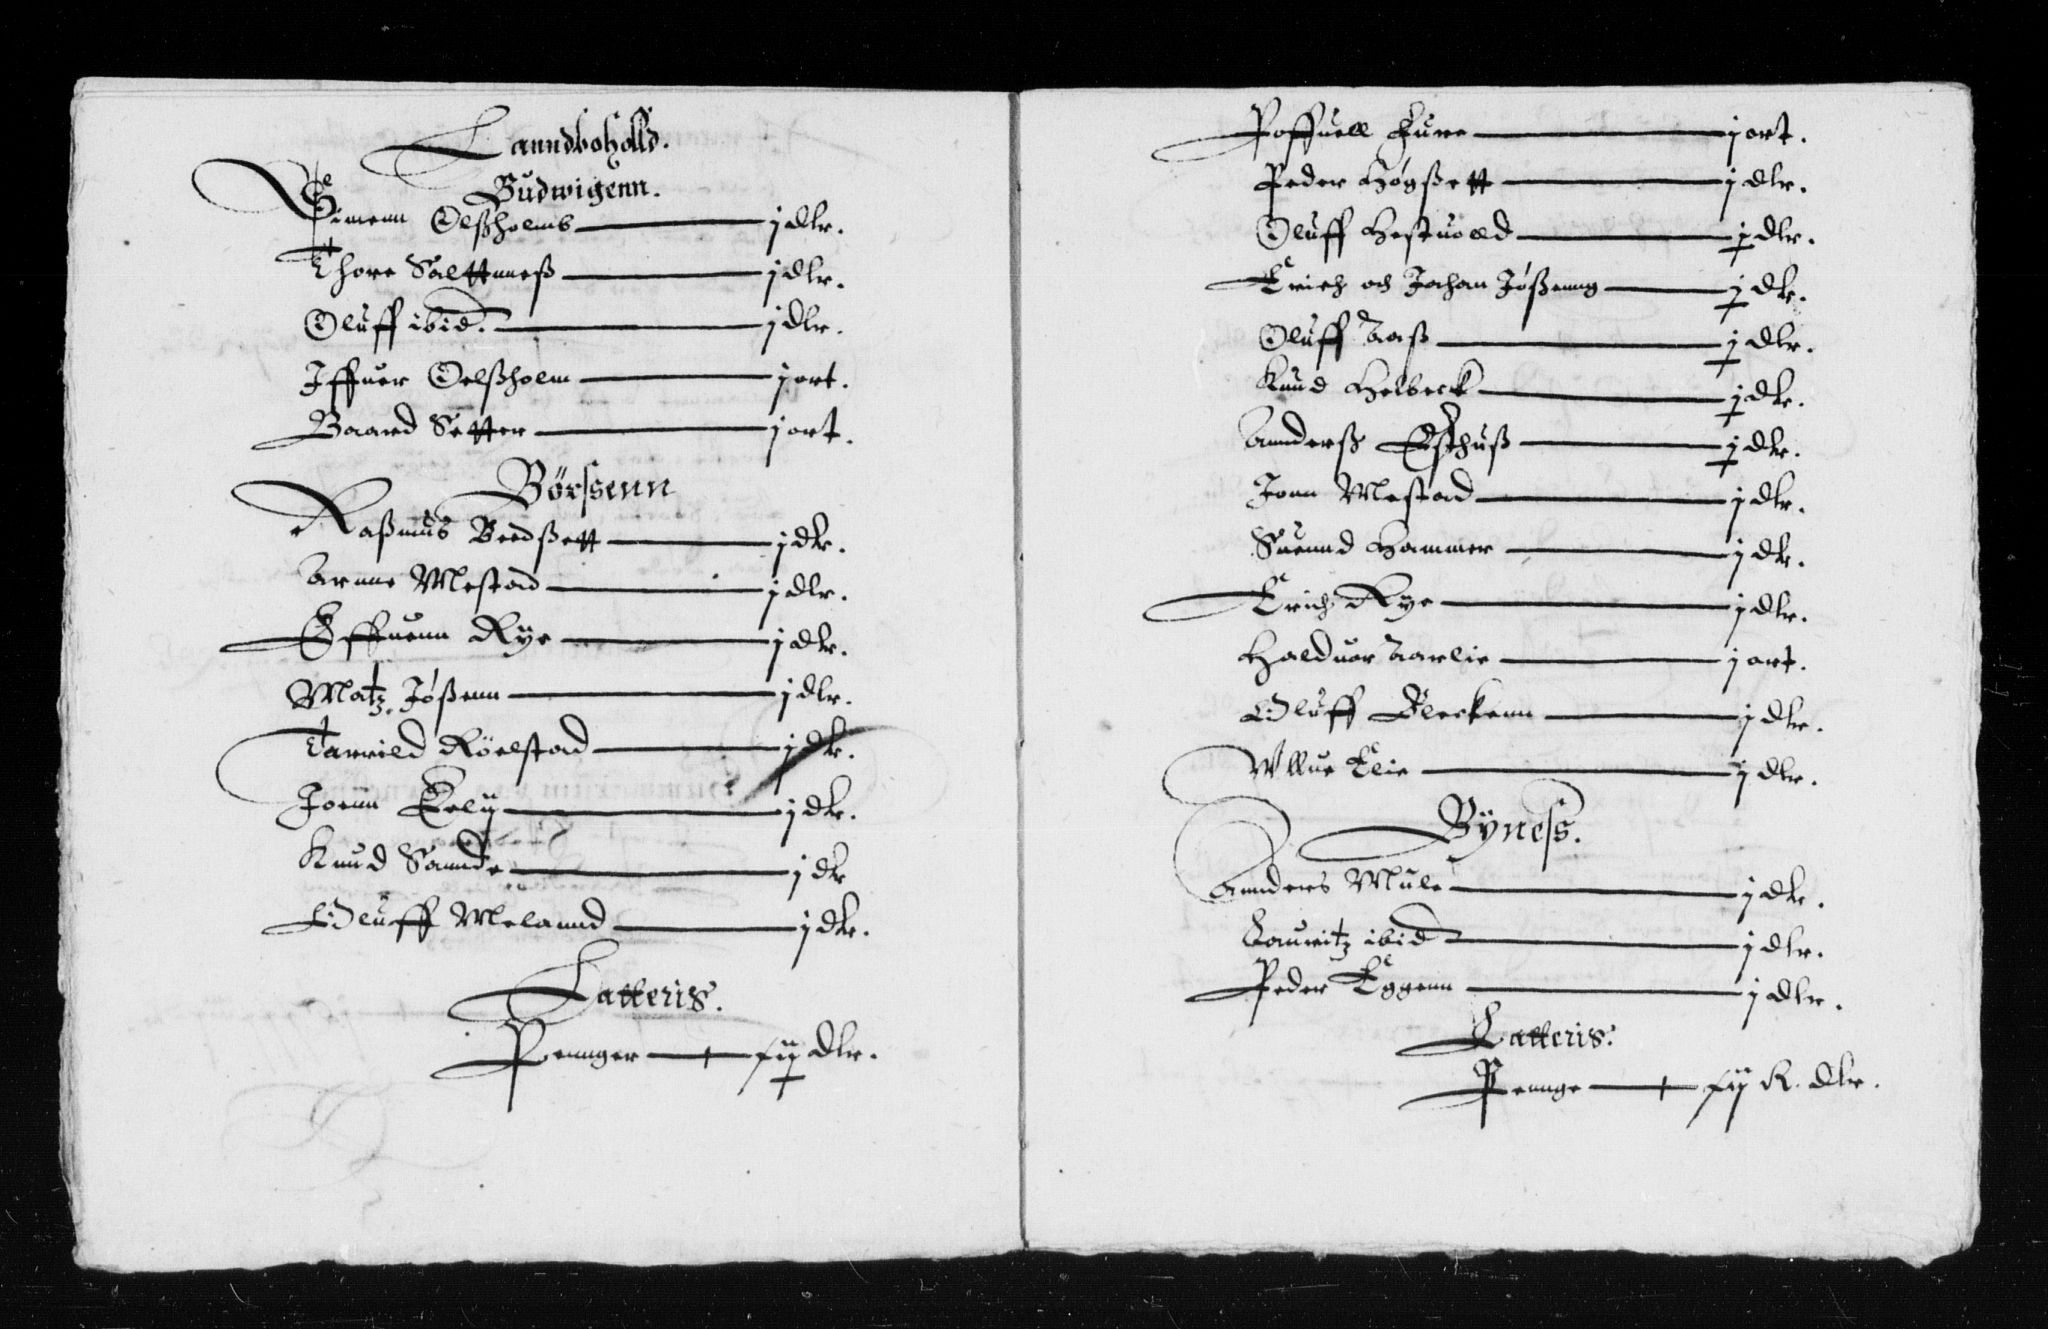 Lanndbohold.
Budwigenn.
Simenn Olßholmb j dlr.
Thore Saltttneß j dlr.
Oluff ibid. j dlr.
Iffuer Oelßholm j ort.
Baard Setter j ort.
Børssenn
Raßmus Bredßett j dlr.
Arnne Mestad j dlr.
Effuenn Rye j dlr.
Matz Jøßenn j dlr.
Taruild Röelstad j dlr.
Joenn Eelij j dlr.
Knud Sannde j dlr
Oluff Melannd j dlr.
Latteris.
Pennger xij dlr.
Poffuell Fure j ort.
Peder Høgßett j dlr.
Oluff Hestuold j dlr.
Erich och Johan Jøßenng j dlr.
Oluff Aaß j dlr.
Knud Holbeck j dlr.
Annderß Esthuß j dlr.
Jonn Mestad j dlr.
Suennd Hammer j dlr.
Erich Rye j dlr.
Halduor Aarlie j ort.
Oluff Bleckenn j dlr.
Wllue Elie j dlr.
Byness.
Annders Mule j dlr.
Lauritz ibid j dlr.
Peder Eggenn j dlr.
Latteris.
Pennge xij R. dlr.